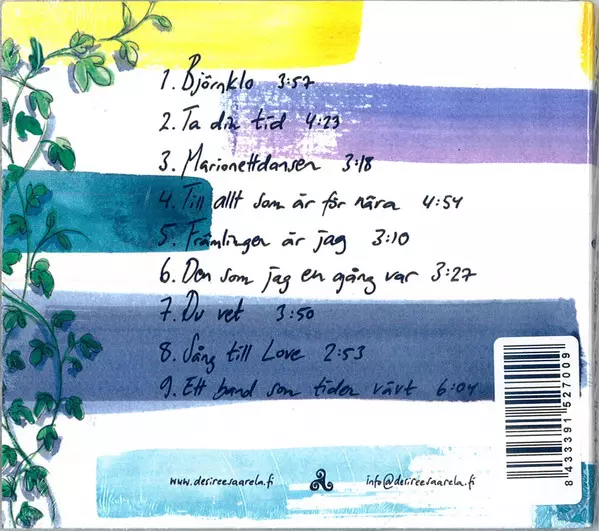 1. Björnklo 3:57
2. Ta din tid 4:23
3. Marionettdansen 3:18
4. Till allt som är för nära 4:54
5. Främlingen är jag 3:10
6. Den som jag en gång var 3:27
7. Du vet 3:50
8. Sång till Love 2:53
9. Ett band som tiden vävt 6:04
www.desireesaarela.fi
info@desireesaarela.fi
8 433391 527009